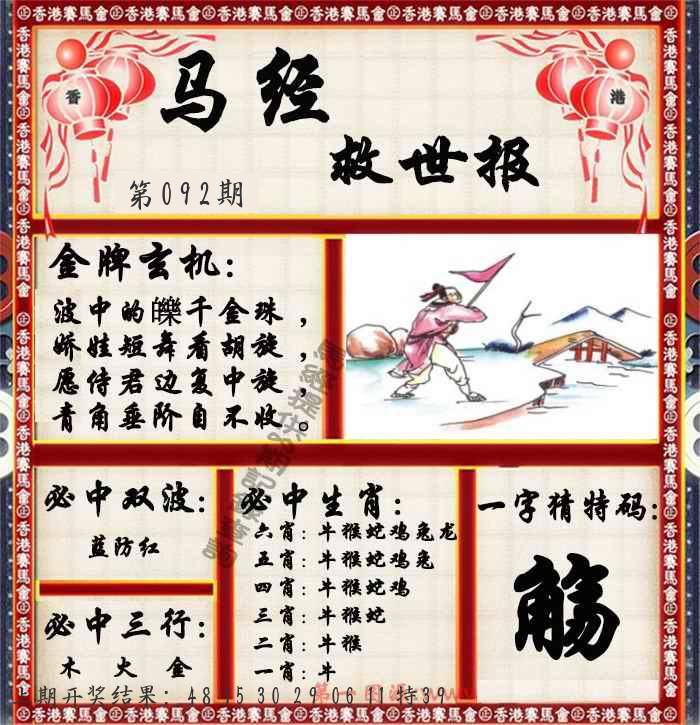 香港賽馬會
香 港
马经
救世报
第092期
金牌玄机:
波中的皪千金珠,
娇娃短舞看胡旋,
愿侍君边复中旋,
青角垂阶自不收。
必中双波:
蓝防红
必中三行:
木 火 金
必中生肖:
六肖:牛猴蛇鸡兔龙
五肖:牛猴蛇鸡兔
四肖:牛猴蛇鸡
三肖:牛猴蛇
二肖:牛猴
一肖:牛
一字猜特码:
觞
期开奖结果:48 45 30 29 06 11特39
第一图源